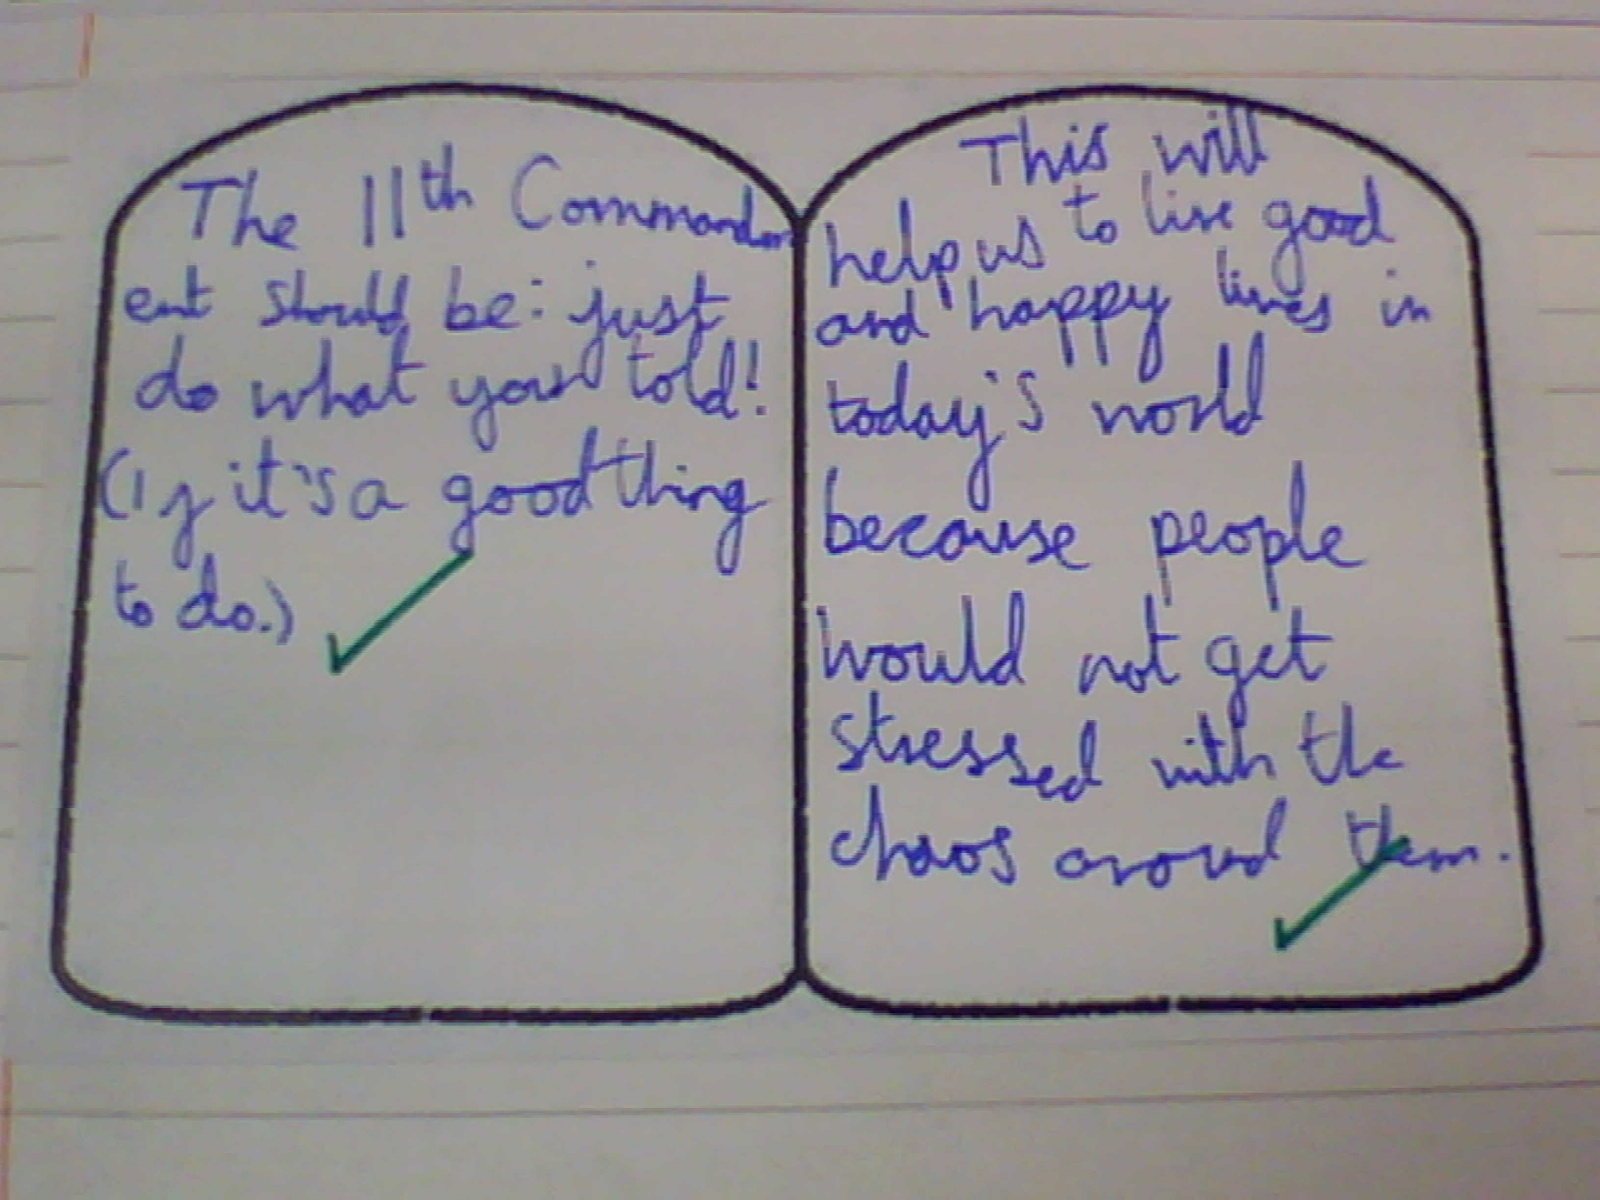 The 11th Commandm
ent should be: just
do what your told!
(If it's a good thing
to do.)
This will
help us to live good
and happy lives in
today's world
because people
would not get
stressed with the
chaos around them.